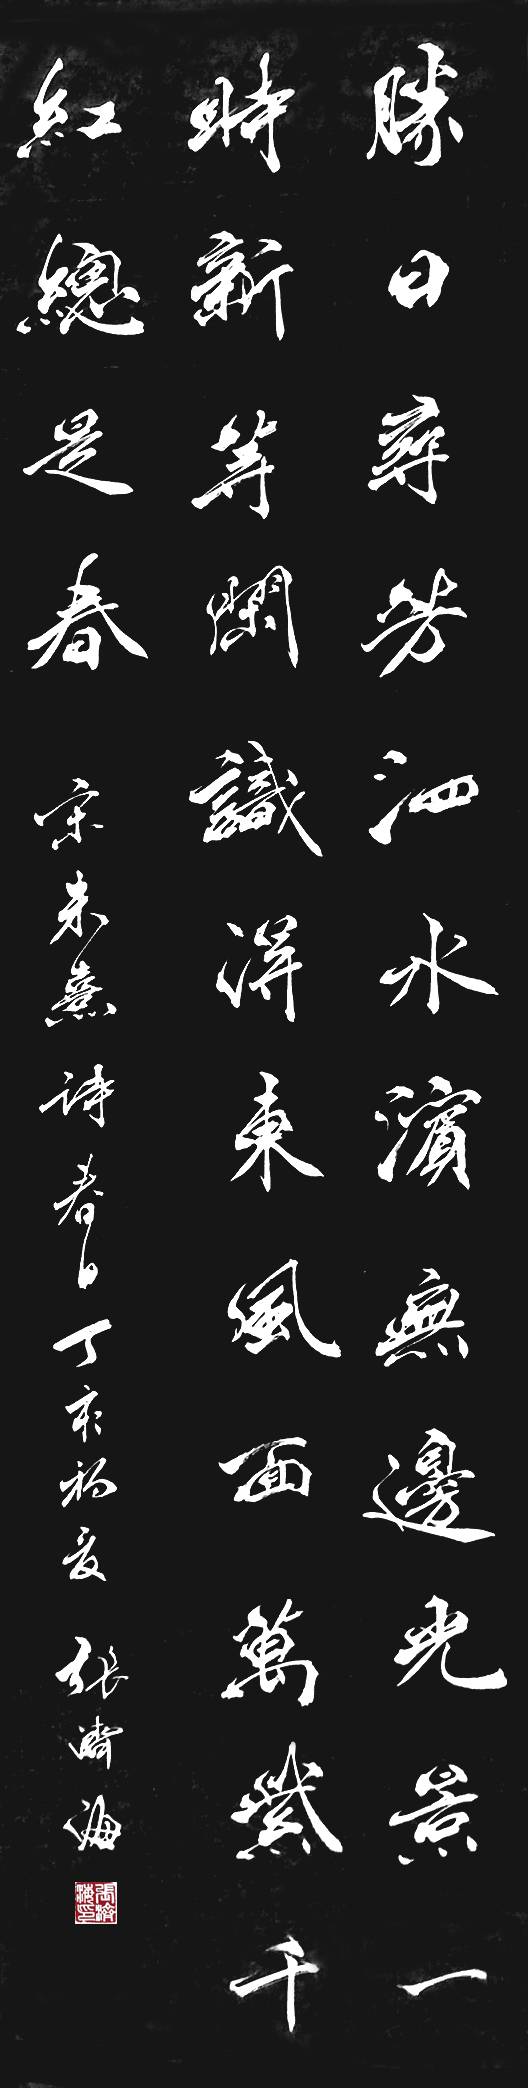 勝日尋芳泗水濱無邊光景一
時新等閑識得東風面萬紫千
紅總是春 宋朱熹詩春日丁亥初夏 張濟海
張濟海印